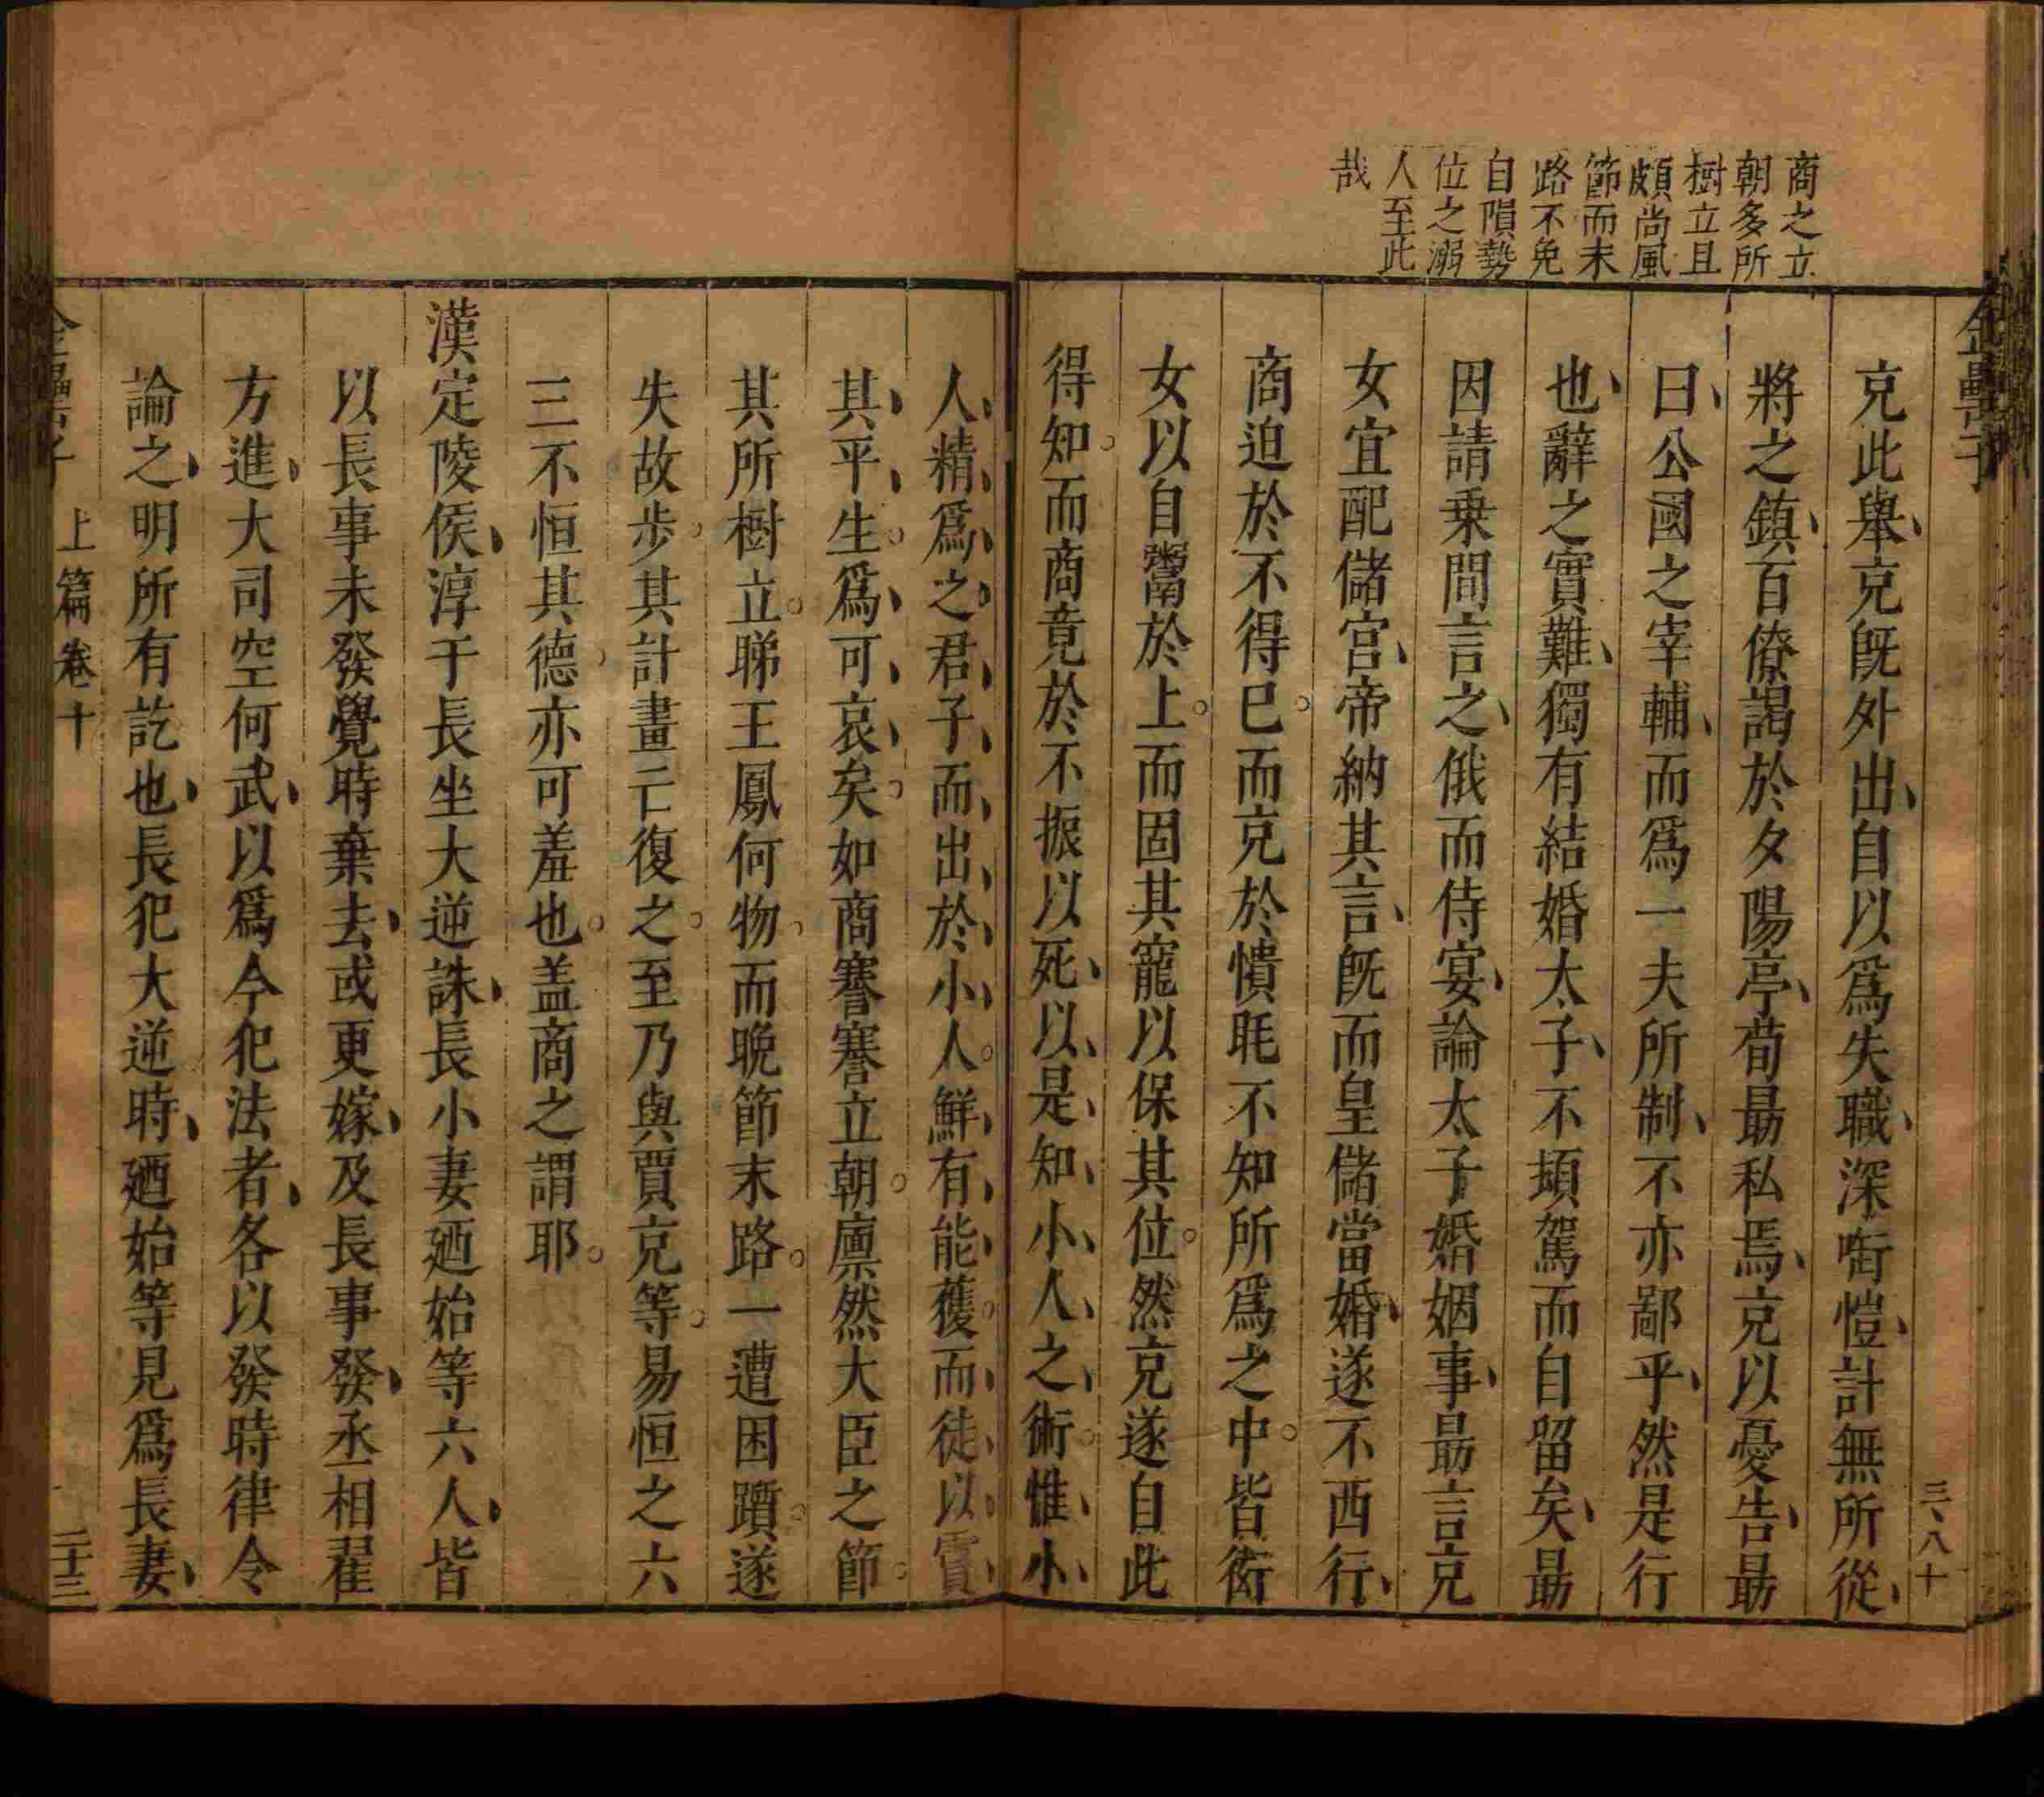 商之立
朝多所
樹立且
頗尚風
節而末
路不免
自隕勢
位之溺
人至此
哉
金罍子
三、八十
克此舉、克旣外出、自以爲失職、深啣愷、計無所從、
將之鎮、百僚謁於夕陽亭、荀勗私焉、克以憂告、勗
曰、公國之宰輔、而爲一夫所制、不亦鄙乎、然是行
也、辭之實難、獨有結婚太子、不頓駕而自留矣、勗
因請乗間言之、俄而侍宴、論太子婚姻事、勗言克
女宜配儲宫、帝納其言、旣而皇儲當婚、遂不西行、
商迫於不得已。而克於憒眊不知所爲之中。皆衒
女以自鬻於上。而固其寵以保其位。然克遂自此
得知。而商竟於不振以死、以、是、知、小、人、之、術。惟、小、
人、精、爲、之。君、子、而、出、於、小、人。鮮、有、能、獲。而、徒、以。賣、
其、平、生。爲、可、哀、矣。如商謇謇立朝。廪然大臣之節。
其所樹立。睇王鳳何物。而晚節末路。一遭困躓。遂
失故步。其計畫亡復之。至乃與賈克等。易恒之六
三不恒其德。亦可羞也。盖商之謂耶。
漢定陵侯、淳于長坐大逆誅、長小妻廼始等六人、皆
以長事未發覺時棄去、或更嫁、及長事發、丞相翟
方進、大司空何武、以爲令犯法者、各以發時律令
論之、明所有訖也、長犯大逆時、廼始等見爲長妻、
上篇卷十
二十三